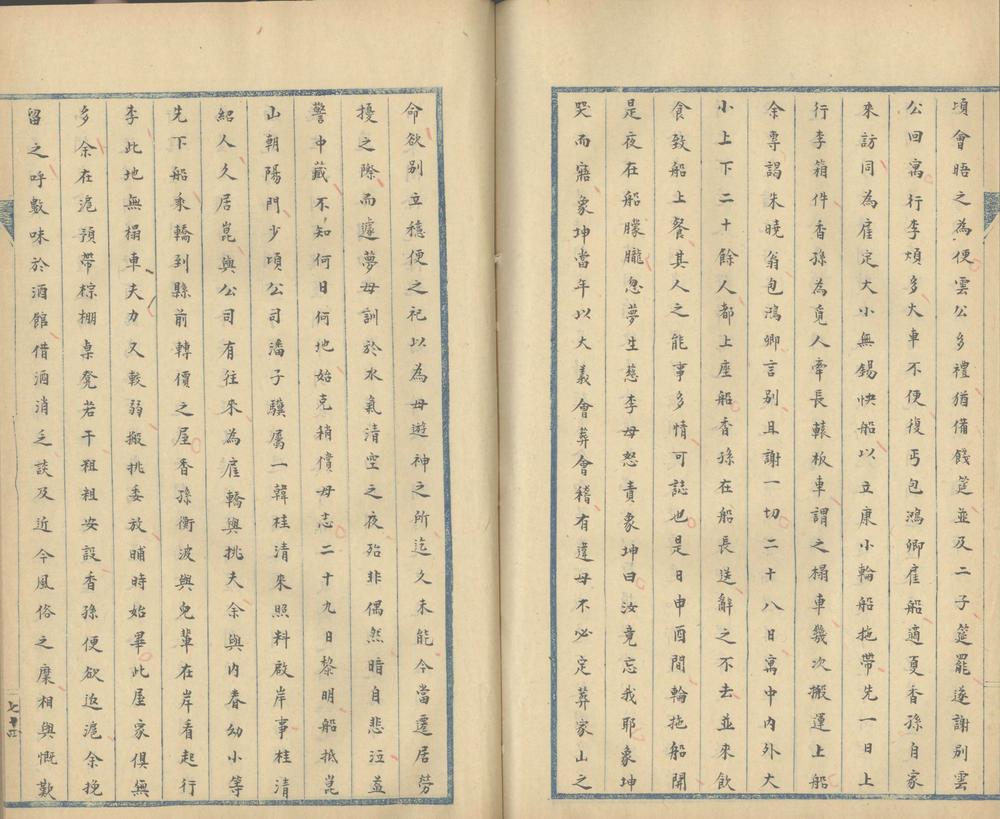 頃會晤之為便雲公多禮猶備餞筵並及二子筵罷遂謝別雲
公回寓行李煩多大車不便復丐包鴻卿雇船適夏香孫自家
來訪同為雇定大小無錫快船以立康小輪船拖帶先一日上
行李箱件香孫為覓人牽長轅板車謂之榻車幾次搬運上船
余專謁朱曉翁包鴻卿言別且謝一切二十八日寓中內外大
小上下二十餘人都上座船香孫在船長送辭之不去並來飲
食致船上餐其人之能事多情可誌也是日申酉間輪拖船開
是夜在船朦朧忽夢生慈李母怒責象坤曰汝竟忘我耶象坤
哭而寤象坤當年以大義會葬會稽有違母不必定葬家山之
命欲別立穩便之祀以為母遊神之所迄久未能今當遷居勞
擾之際而遽夢母訓於水氣清空之夜殆非偶然暗自悲泣益
警中藏不知何日何地始克稍償母志二十九日黎明船抵崑
山朝陽門少頃公司潘子驥屬一韓桂清來照料啟岸事桂清
紹人久居崑與公司有往來為雇轎與挑夫余與內眷幼小等
先下船乘轎到縣前轉價之屋香孫衡波與兒輩在岸看起行
李此地無榻車夫力又較弱搬挑委放晡時始畢此屋家俱無
多余在滬預帶棕棚桌凳若干粗粗安設香孫便欲返滬余挽
留之呼數味於酒館借酒消乏談及近今風俗之糜相與慨歎